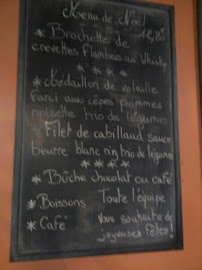 Menu de Noël
Brochette de
crevettes Flambées au Whisky
* * * *
* Médaillon de volaille
farci aux cèpes pommes
noisette trio de légumes
Filet de cabillaud sauce
beurre blanc riz trio de légumes
* * * *
* Bûche chocolat ou café
* Boissons Toute l'équipe
* Café vous souhaite de
joyeuses fêtes !